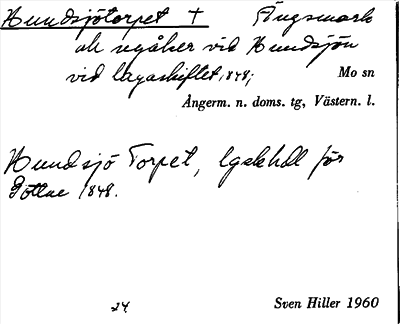 Hundsjötorpet + Ängsmark
ok nyåker vid Hundsjön
vid lagaskiftet, 1848;
Mo sn
Ångerm. n. doms. tg, Västern. l.
Hundsjö Torpet, lgskhdl för
Göttne 1848.
24 Sven Hiller 1960